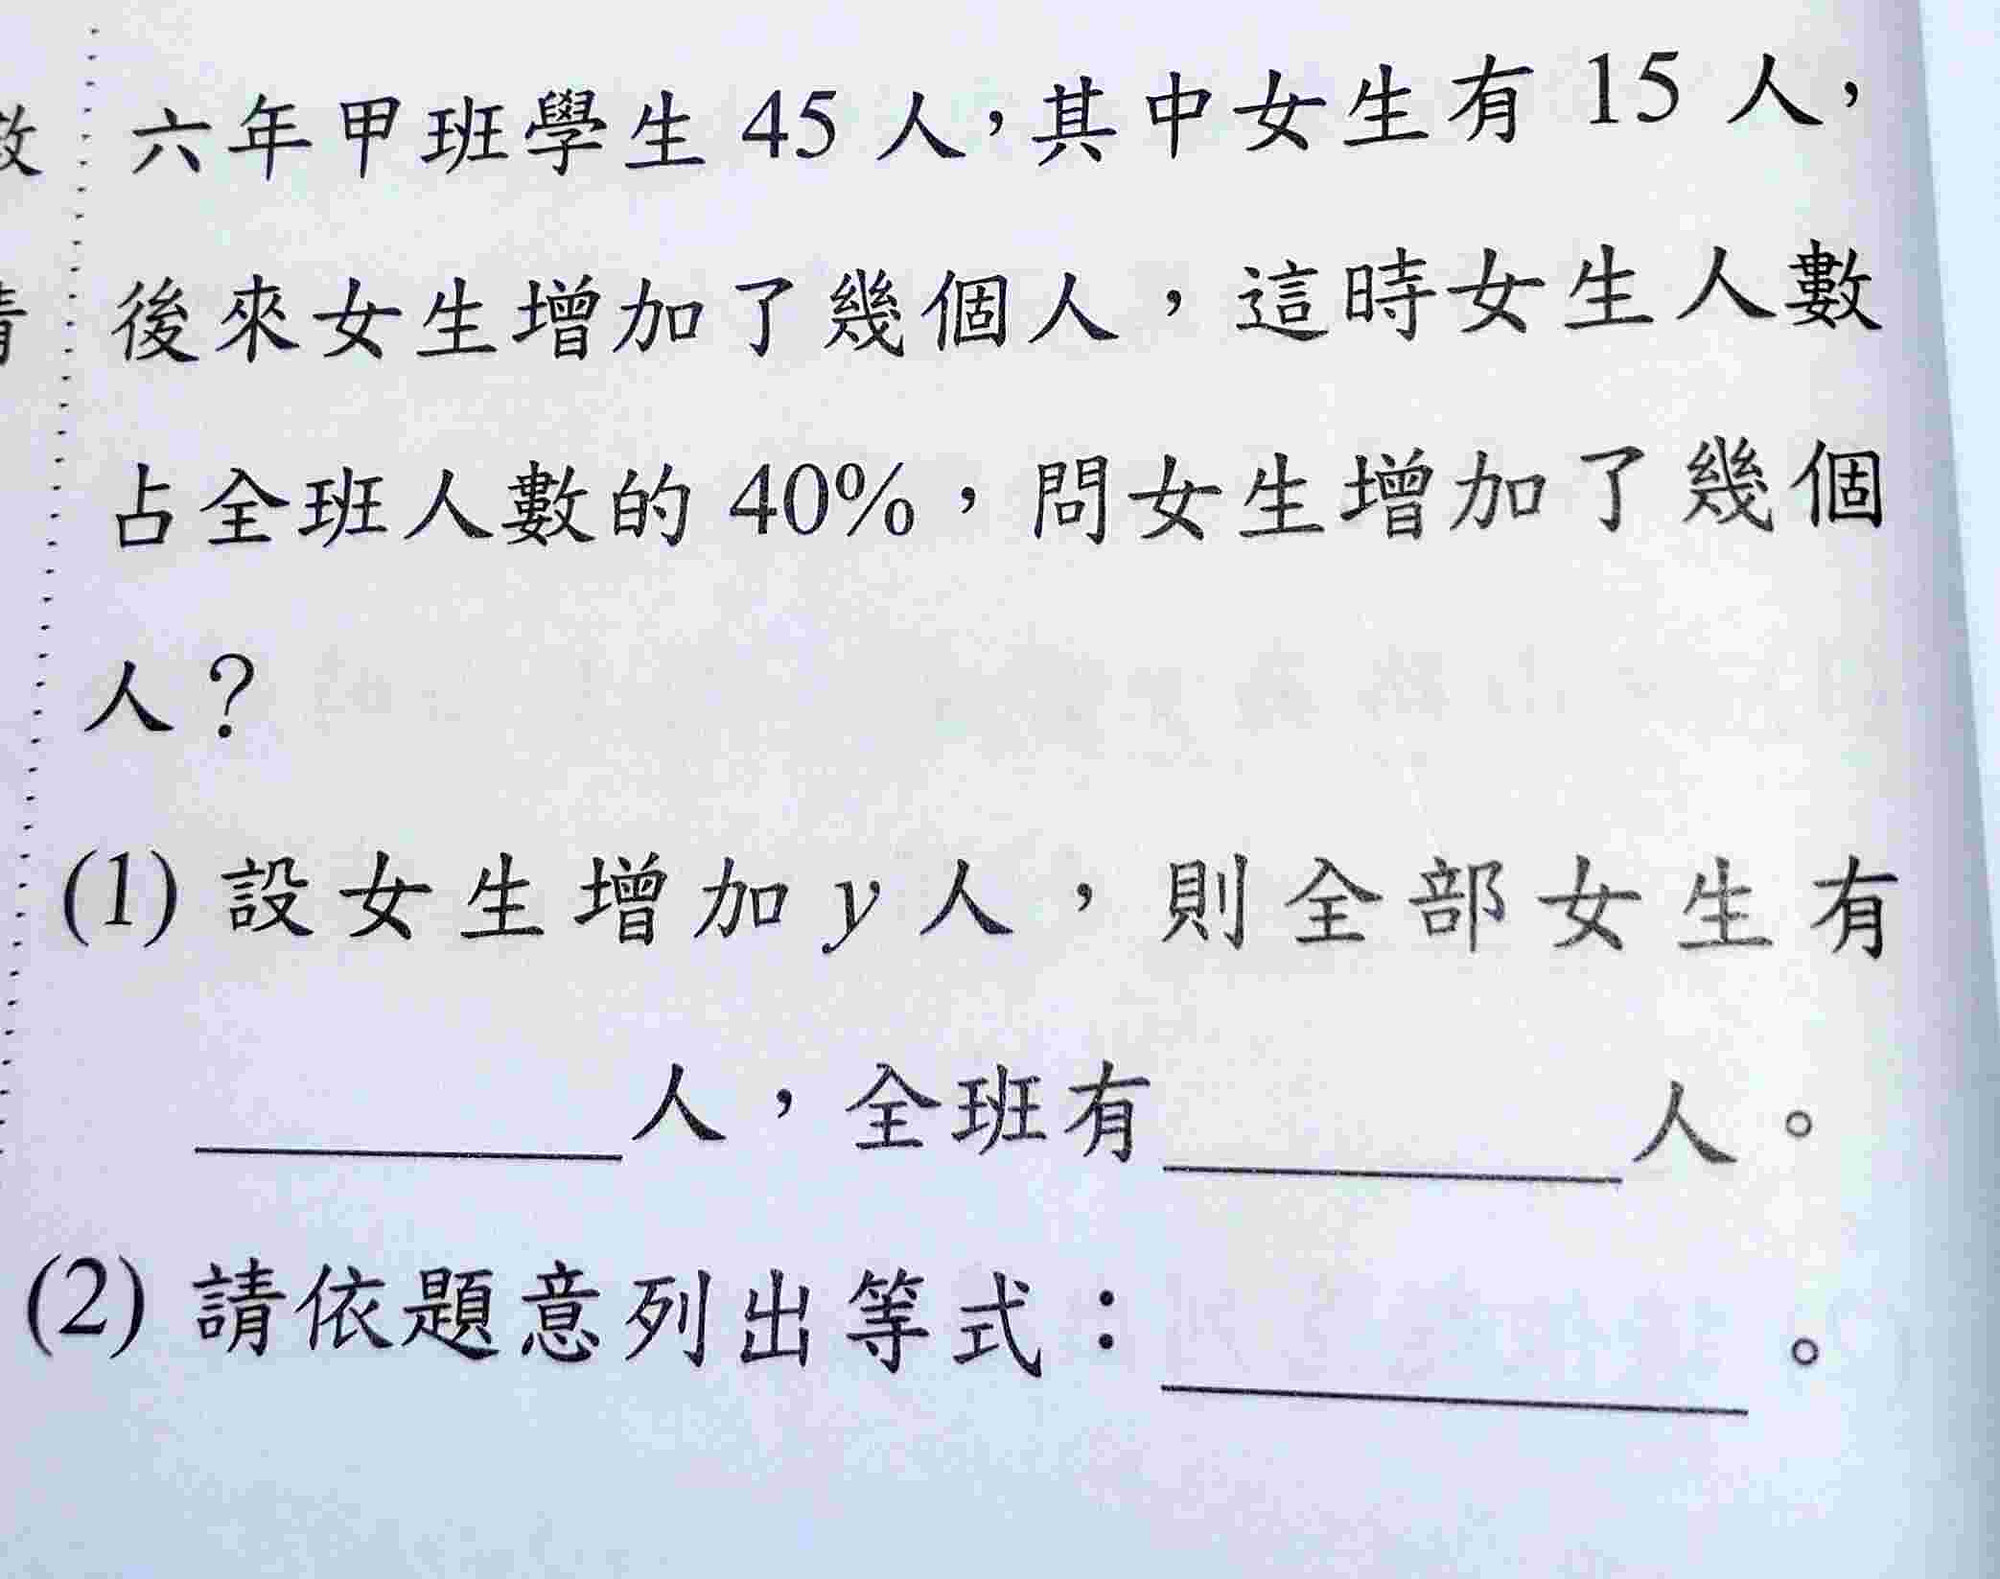 六年甲班學生 45 人，其中女生有 15 人，
後來女生增加了幾個人，這時女生人數
占全班人數的 40%，問女生增加了幾個
人？
(1) 設女生增加 y 人，則全部女生有
________人，全班有________人。
(2) 請依題意列出等式：________。